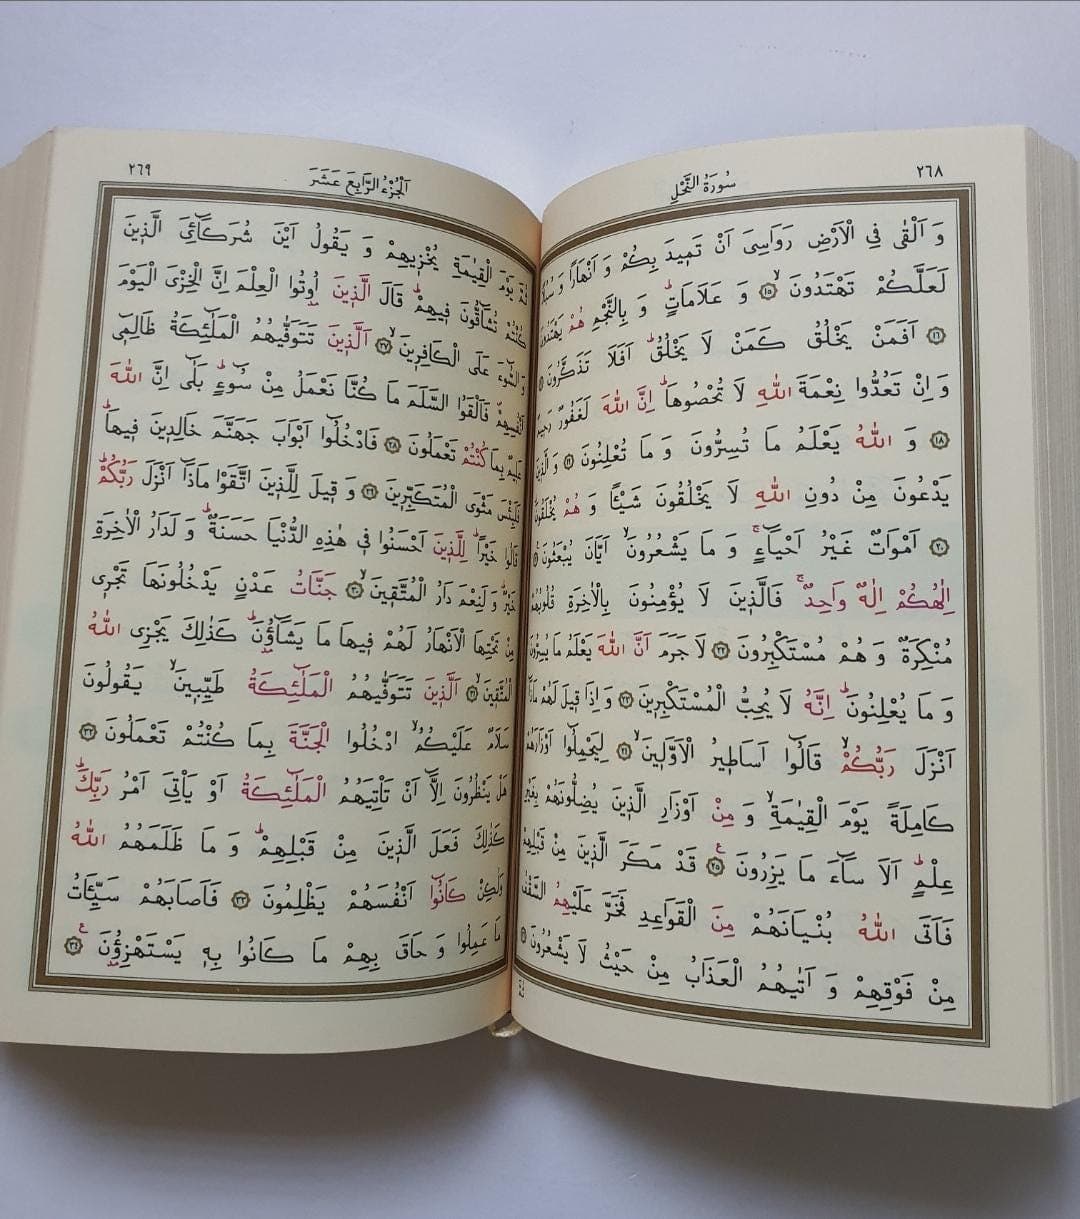 ٢٦٨
سُورَةُ النَّحْلِ
وَ اَلْقٰى فِي الْاَرْضِ رَوَاسِيَ اَنْ تَمٖيدَ بِكُمْ وَ اَنْهَارًا وَ سُبُلًا
لَعَلَّكُمْ تَهْتَدُونَۙ ﴿١٥﴾ وَ عَلَامَاتٍؕ وَ بِالنَّجْمِ هُمْ يَهْتَدُونَ
﴿١٦﴾ اَفَمَنْ يَخْلُقُ كَمَنْ لَا يَخْلُقُؕ اَفَلَا تَذَكَّرُونَ
وَ اِنْ تَعُدُّوا نِعْمَةَ اللّٰهِ لَا تُحْصُوهَاؕ اِنَّ اللّٰهَ لَغَفُورٌ رَحٖيمٌ
﴿١٨﴾ وَ اللّٰهُ يَعْلَمُ مَا تُسِرُّونَ وَ مَا تُعْلِنُونَ ﴿١٩﴾ وَ الَّذٖينَ
يَدْعُونَ مِنْ دُونِ اللّٰهِ لَا يَخْلُقُونَ شَيْـًٔا وَ هُمْ يُخْلَقُونَؕ
﴿٢٠﴾ اَمْوَاتٌ غَيْرُ اَحْيَٓاءٍۚ وَ مَا يَشْعُرُونَۙ اَيَّانَ يُبْعَثُونَ
اِلٰهُكُمْ اِلٰهٌ وَاحِدٌۚ فَالَّذٖينَ لَا يُؤْمِنُونَ بِالْاٰخِرَةِ قُلُوبُهُمْ
مُنْكِرَةٌ وَ هُمْ مُسْتَكْبِرُونَ ﴿٢٢﴾ لَا جَرَمَ اَنَّ اللّٰهَ يَعْلَمُ مَا يُسِرُّونَ
وَ مَا يُعْلِنُونَؕ اِنَّهُ لَا يُحِبُّ الْمُسْتَكْبِرٖينَ ﴿٢٣﴾ وَ اِذَا قٖيلَ لَهُمْ مَاذَٓا
اَنْزَلَ رَبُّكُمْۙ قَالُٓوا اَسَاطٖيرُ الْاَوَّلٖينَۙ ﴿٢٤﴾ لِيَحْمِلُٓوا اَوْزَارَهُمْ
كَامِلَةً يَوْمَ الْقِيٰمَةِۙ وَ مِنْ اَوْزَارِ الَّذٖينَ يُضِلُّونَهُمْ بِغَيْرِ
عِلْمٍؕ اَلَا سَٓاءَ مَا يَزِرُونَ ﴿٢٥﴾ ع قَدْ مَكَرَ الَّذٖينَ مِنْ قَبْلِهِمْ
فَاَتَى اللّٰهُ بُنْيَانَهُمْ مِنَ الْقَوَاعِدِ فَخَرَّ عَلَيْهِمُ السَّقْفُ
مِنْ فَوْقِهِمْ وَ اَتٰيهُمُ الْعَذَابُ مِنْ حَيْثُ لَا يَشْعُرُونَ
ثُمَّ
٢٦٩
اَلْجُزْءُ الرَّابِعَ عَشَرَ
ثُمَّ يَوْمَ الْقِيٰمَةِ يُخْزٖيهِمْ وَ يَقُولُ اَيْنَ شُرَكَٓائِيَ الَّذٖينَ
كُنْتُمْ تُشَٓاقُّونَ فٖيهِمْؕ قَالَ الَّذٖينَ اُوتُوا الْعِلْمَ اِنَّ الْخِزْيَ الْيَوْمَ
وَ السُّٓوءَ عَلَى الْكَافِرٖينَۙ ﴿٢٧﴾ اَلَّذٖينَ تَتَوَفّٰيهُمُ الْمَلٰٓئِكَةُ ظَالِمٖٓي
اَنْفُسِهِمْࣕ فَاَلْقَوُا السَّلَمَ مَا كُنَّا نَعْمَلُ مِنْ سُٓوءٍؕ بَلٰٓى اِنَّ اللّٰهَ
عَلٖيمٌ بِمَا كُنْتُمْ تَعْمَلُونَ ﴿٢٨﴾ فَادْخُلُٓوا اَبْوَابَ جَهَنَّمَ خَالِدٖينَ فٖيهَاؕ
فَلَبِئْسَ مَثْوَى الْمُتَكَبِّرٖينَ ﴿٢٩﴾ وَ قٖيلَ لِلَّذٖينَ اتَّقَوْا مَاذَٓا اَنْزَلَ رَبُّكُمْؕ
قَالُوا خَيْرًاؕ لِلَّذٖينَ اَحْسَنُوا فٖي هٰذِهِ الدُّنْيَا حَسَنَةٌؕ وَ لَدَارُ الْاٰخِرَةِ
خَيْرٌؕ وَ لَنِعْمَ دَارُ الْمُتَّقٖينَۙ ﴿٣٠﴾ جَنَّاتُ عَدْنٍ يَدْخُلُونَهَا تَجْرٖي
مِنْ تَحْتِهَا الْاَنْهَارُ لَهُمْ فٖيهَا مَا يَشَٓاؤُ۫نَؕ كَذٰلِكَ يَجْزِي اللّٰهُ
الْمُتَّقٖينَۙ ﴿٣١﴾ اَلَّذٖينَ تَتَوَفّٰيهُمُ الْمَلٰٓئِكَةُ طَيِّبٖينَۙ يَقُولُونَ
سَلَامٌ عَلَيْكُمُۙ ادْخُلُوا الْجَنَّةَ بِمَا كُنْتُمْ تَعْمَلُونَ ﴿٣٢﴾
هَلْ يَنْظُرُونَ اِلَّٓا اَنْ تَاْتِيَهُمُ الْمَلٰٓئِكَةُ اَوْ يَاْتِيَ اَمْرُ رَبِّكَؕ
كَذٰلِكَ فَعَلَ الَّذٖينَ مِنْ قَبْلِهِمْؕ وَ مَا ظَلَمَهُمُ اللّٰهُ
وَلٰكِنْ كَانُٓوا اَنْفُسَهُمْ يَظْلِمُونَ ﴿٣٣﴾ فَاَصَابَهُمْ سَيِّـَٔاتُ
مَا عَمِلُوا وَ حَاقَ بِهِمْ مَا كَانُوا بِهٖ يَسْتَهْزِؤُ۫نَ ﴿٣٤﴾ ع